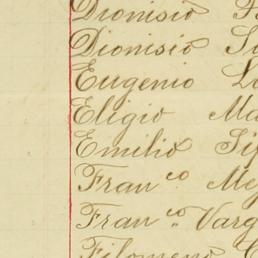 Dionisio
Dionisio
Eugenio
Eligio Ma
Emilio
Fran.co Me
Fran.co Varg
Filomeno